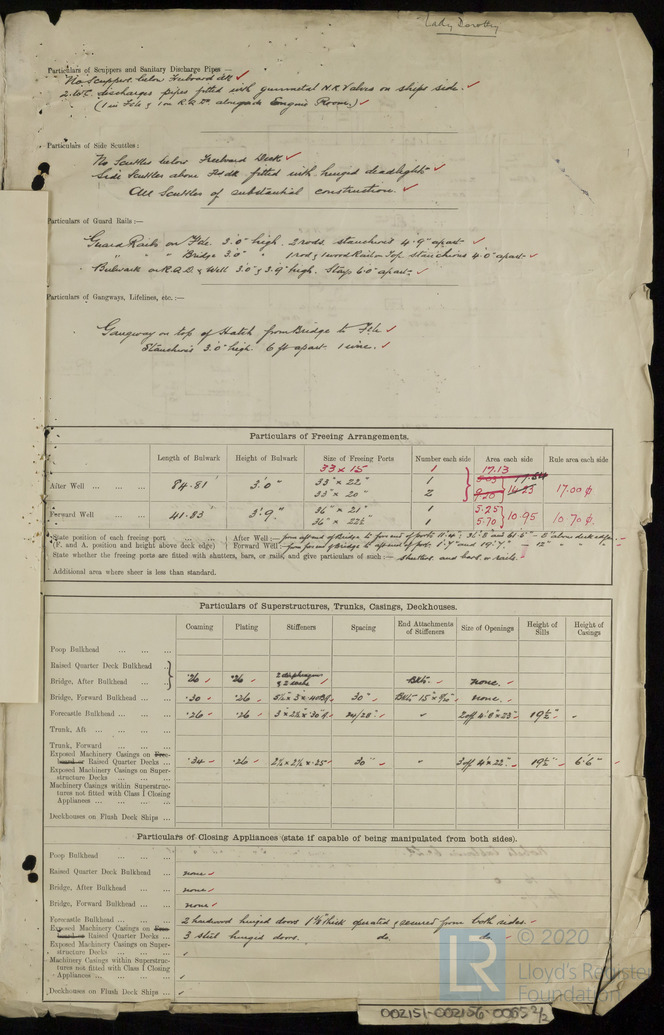 Lady Dorothy
Particulars of Scuppers and Sanitary Discharge Pipes —
No Scuppers below Freeboard dk ✓
2 W.C. discharges pipes fitted with gunmetal N.R Valves on ships side. ✓
(1 in F'cle & 1 on R.Q.Dk alongside Engine Room.) ✓
Particulars of Side Scuttles :
No Scuttles below Freeboard Deck ✓
Side Scuttles above Fd dk fitted with hinged deadlights ✓
All Scuttles of substantial construction. ✓
Particulars of Guard Rails :—
Guard Rails on F'cle. 3'.0" high. 2 rods. stanchions 4'.9" apart ✓
" " " Bridge 3'.0" " 1 rod & 1 wood Rail on Top stanchions 4'.0" apart ✓
Bulwark on R.Q.D. & Well 3'.0" & 3'.9" high. Stays 6'.0" apart. ✓
Particulars of Gangways, Lifelines, etc. :—
Gangway on top of Hatch from Bridge to F'cle ✓
Stanchions 3'.0" high. 6 ft apart. 1 wire. ✓
Particulars of Freeing Arrangements.
Length of Bulwark Height of Bulwark Size of Freeing Ports Number each side Area each side Rule area each side
33 x 15 1 17.13
After Well ... 84.81' 3'.0" 33" x 22" 1 16.23 17.00
33" x 20" 2 9.20
Forward Well ... 41.83' 3'.9" 36" x 21" 1 5.25 10.95 10.70
36" x 22½" 1 5.70
State position of each freeing port ... ... After Well :— from aft end of Bridge to for end of ports
(F. and A. position and height above deck edge) Forward Well :— from for end of Bridge to aft end of port
State whether the freeing ports are fitted with shutters, bars, or rails, and give particulars of each :— shutters and bars or rails.
Additional area where sheer is less than standard.
Particulars of Superstructures, Trunks, Casings, Deckhouses.
Coaming Plating Stiffeners Spacing End Attachments of Stiffeners Size of Openings Height of Sills Height of Casings
Poop Bulkhead ... ... ...
Raised Quarter Deck Bulkhead
Bridge, After Bulkhead ... ... .26 .26 2 diaphragms Bkts. none.
Bridge, Forward Bulkhead ... .30 .26 30" none.
Forecastle Bulkhead ... ... .26 .26 24/28" " 2 off 4'.0" x 23" 19½" "
Trunk, Aft ... ... ... ...
Trunk, Forward ... ... ...
Exposed Machinery Casings on Freeboard or Raised Quarter Decks ... .34 .26 2½ x 2½ x .25 30" " 3 off 4' x 22" 19½" 6'.6"
Exposed Machinery Casings on Superstructure Decks ... ... ...
Machinery Casings within Superstructures not fitted with Class I Closing Appliances ... ... ... ...
Deckhouses on Flush Deck Ships ...
Particulars of Closing Appliances (state if capable of being manipulated from both sides).
Poop Bulkhead ... ... ...
Raised Quarter Deck Bulkhead ... none ✓
Bridge, After Bulkhead ... ... none ✓
Bridge, Forward Bulkhead ... none ✓
Forecastle Bulkhead ... ... 2 hardwood hinged doors 1⅞" thick operated & secured from both sides. ✓
Exposed Machinery Casings on Freeboard or Raised Quarter Decks ... 3 steel hinged doors. do. do. ✓
Exposed Machinery Casings on Superstructure Decks ... ... ...
Machinery Casings within Superstructures not fitted with Class I Closing Appliances ... ... ... ...
Deckhouses on Flush Deck Ships ...
LR © 2020
Lloyd's Register
Foundation
002151-002156-0055 2/2